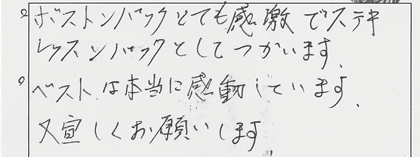 ボストンバックとても感激でステキ
レッスンバックとしてつかいます。
ベストは本当に感動しています。
又宜しくお願いします